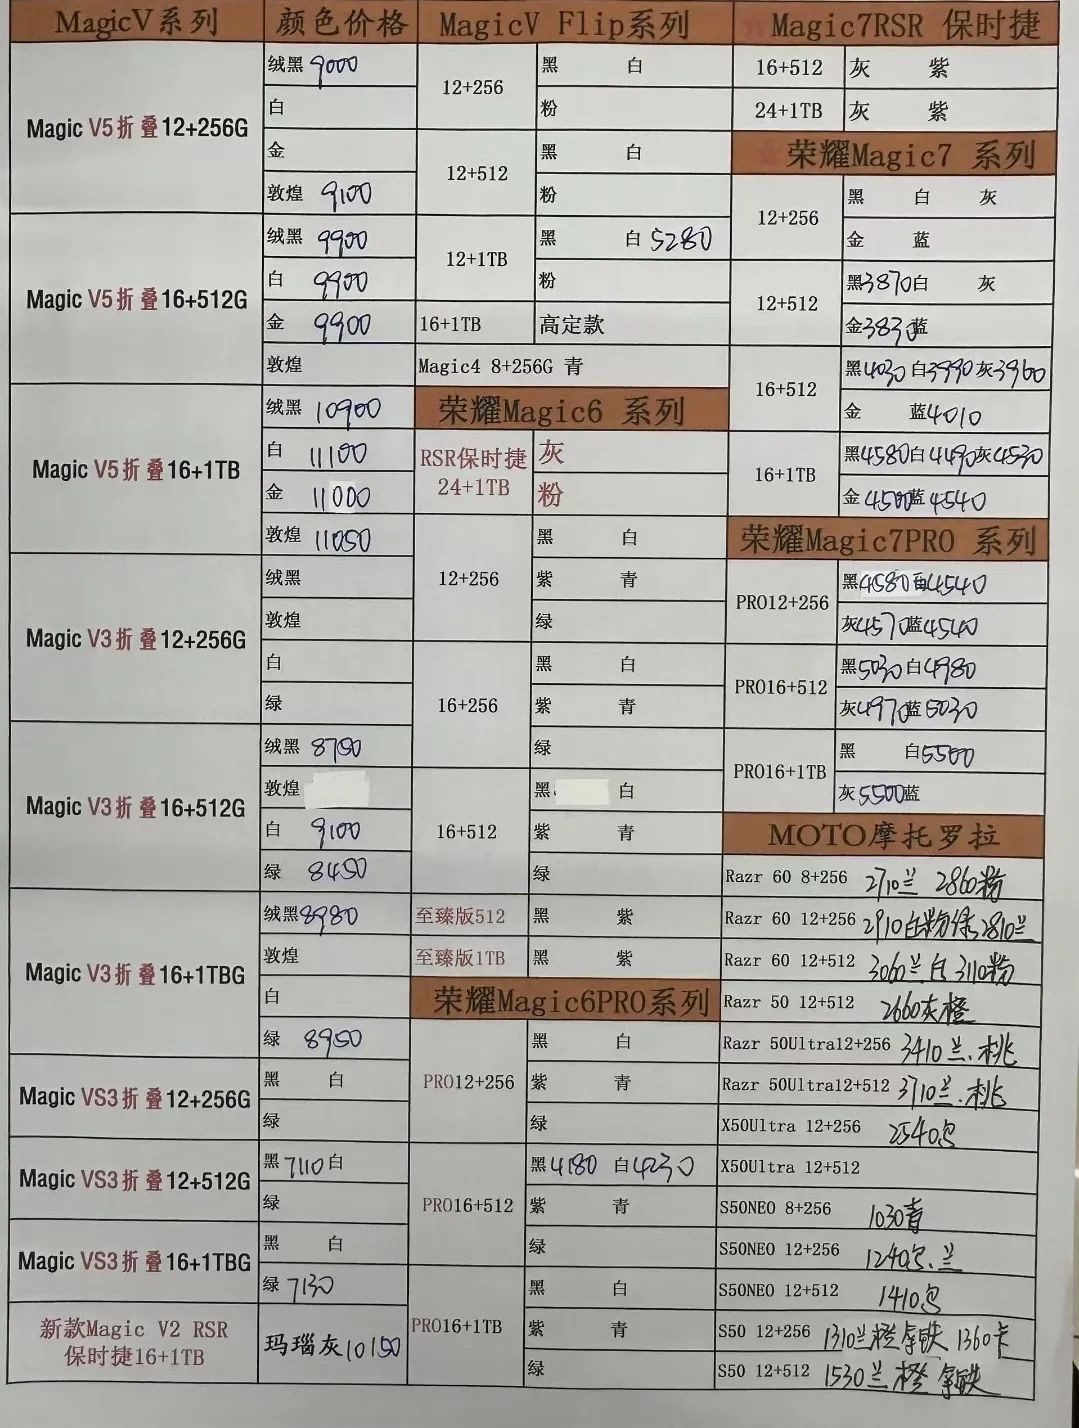 MagicV系列 颜色价格
Magic V5折叠12+256G
绒黑 9000
白
金
敦煌 9100
Magic V5折叠16+512G
绒黑 9900
白 9900
金 9900
敦煌
Magic V5折叠16+1TB
绒黑 10900
白 11100
金 11000
敦煌 11050
Magic V3折叠12+256G
绒黑
敦煌
白
绿
Magic V3折叠16+512G
绒黑 8750
敦煌
白 9100
绿 8450
Magic V3折叠16+1TBG
绒黑8980
敦煌
白
绿 8950
Magic VS3折叠12+256G
黑 白
绿
Magic VS3折叠12+512G
黑7110白
绿
Magic VS3折叠16+1TBG
黑 白
绿7130
新款Magic V2 RSR
保时捷16+1TB
玛瑙灰10150
MagicV Flip系列
12+256
黑 白
粉
12+512
黑 白
粉
12+1TB
黑 白5280
粉
16+1TB 高定款
Magic4 8+256G 青
荣耀Magic6 系列
RSR保时捷
24+1TB
灰
粉
12+256
黑 白
紫 青
绿
16+256
黑 白
紫 青
绿
16+512
黑 白
紫 青
绿
至臻版512 黑 紫
至臻版1TB 黑 紫
荣耀Magic6PRO系列
PRO12+256
黑 白
紫 青
绿
PRO16+512
黑4180 白4230
紫 青
绿
PRO16+1TB
黑 白
紫 青
绿
Magic7RSR 保时捷
16+512 灰 紫
24+1TB 灰 紫
荣耀Magic7 系列
12+256
黑 白 灰
金 蓝
12+512
黑3870白 灰
金3830蓝
16+512
黑4030白3990灰3960
金 蓝4010
16+1TB
黑4580白4490灰4530
金4500蓝4540
荣耀Magic7PRO 系列
PRO12+256
黑4580白4540
灰4570蓝4540
PRO16+512
黑5030白4980
灰4970蓝5030
PRO16+1TB
黑 白5500
灰5500蓝
MOTO摩托罗拉
Razr 60 8+256 2710兰 2860粉
Razr 60 12+256 2910白粉绿,2810兰
Razr 60 12+512 3060兰白3110粉
Razr 50 12+512 2660灰橙
Razr 50Ultra12+256 3410兰.桃
Razr 50Ultra12+512 3710兰.桃
X50Ultra 12+256 2540
X50Ultra 12+512
S50NEO 8+256 1030青
S50NEO 12+256 1240 兰
S50NEO 12+512 1410
S50 12+256 1310兰橙拿铁 1360卡
S50 12+512 1530兰橙 拿铁